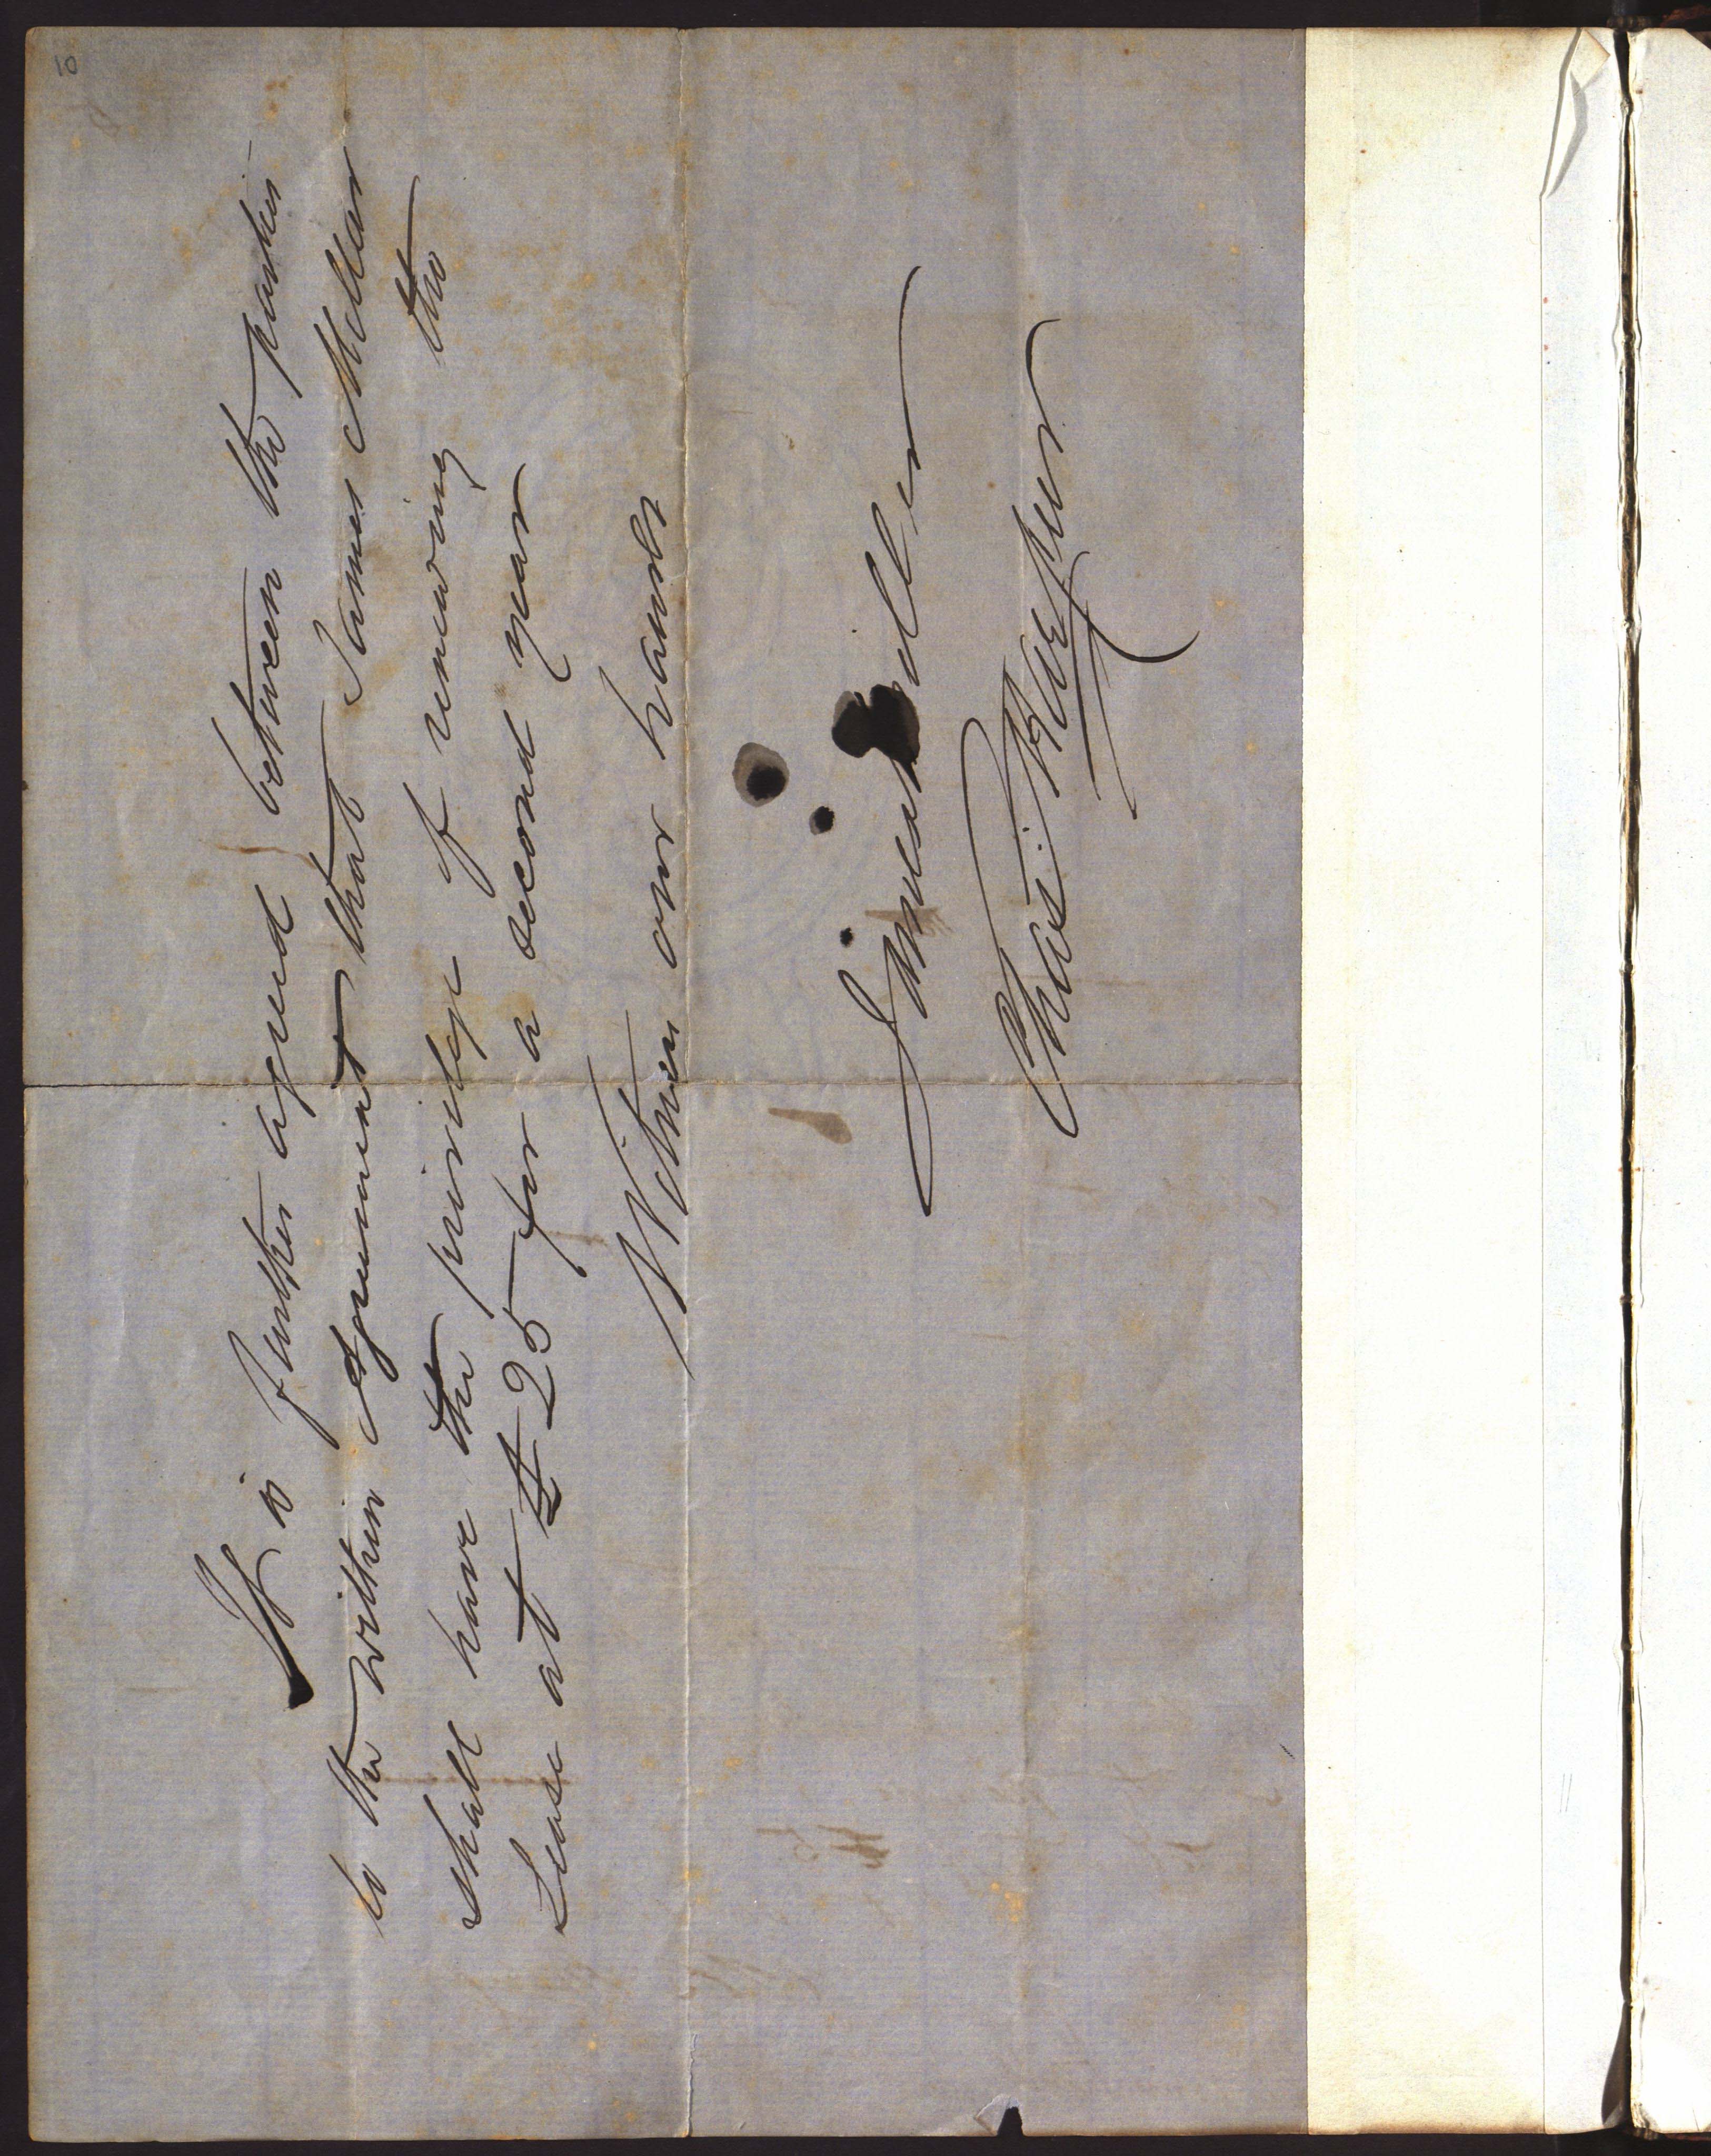 10
It is further agreed between the parties
to the within Agreement that James Mellar
shall have the privilege of renewing the
Lease at £25 for a second year
Witness our hands
Chas: